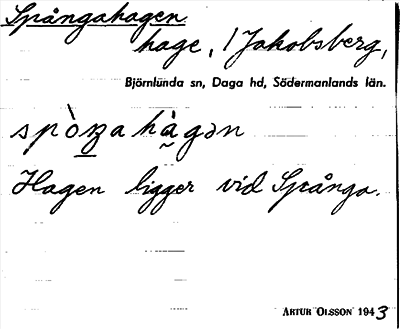 Spångahagen
hage, 1 Jakobsberg,
Björnlunda sn, Daga hd, Södermanlands län.
spòŋa hàgən
Hagen ligger vid Spånga.
ARTUR OLSSON 1943